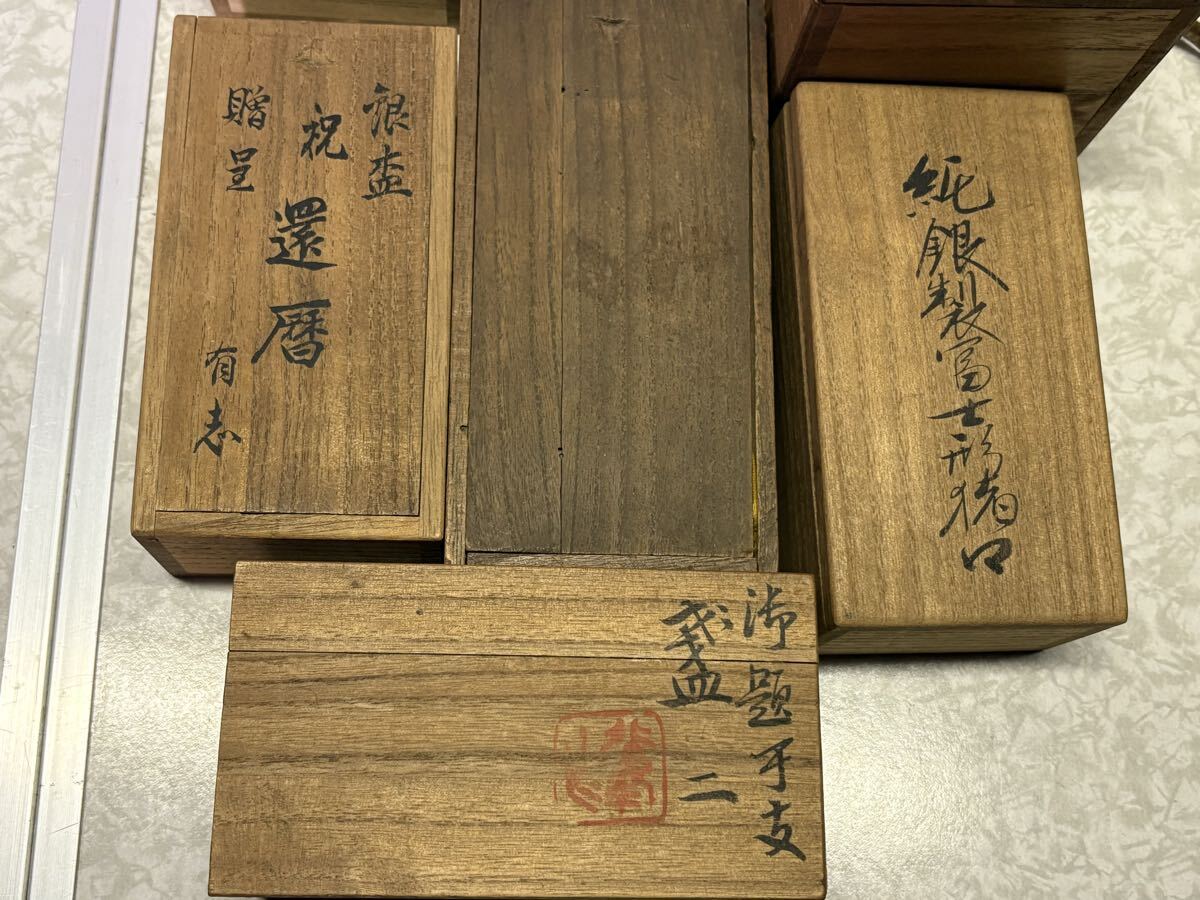 銀盃
祝 還暦
贈呈 有志
純銀製富士形猪口
御題干支
盞 二